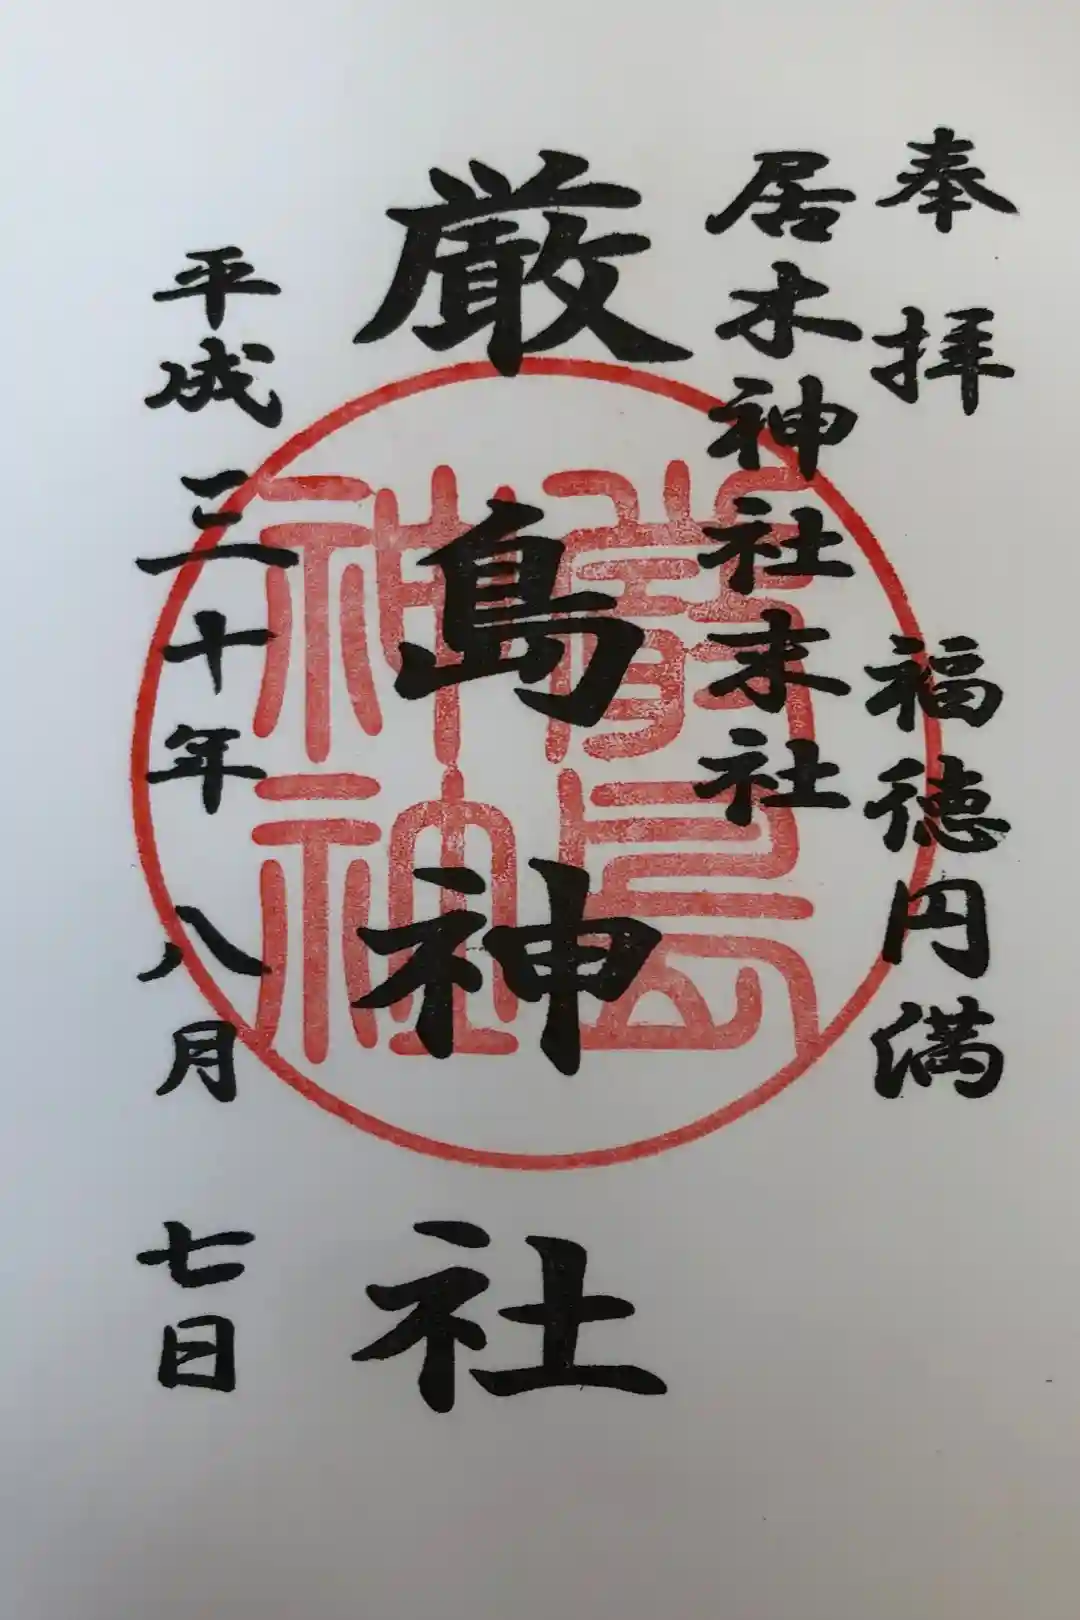 奉拝 福徳円満
居木神社末社
厳島神社
平成三十年 八月 七日
嚴島
神社